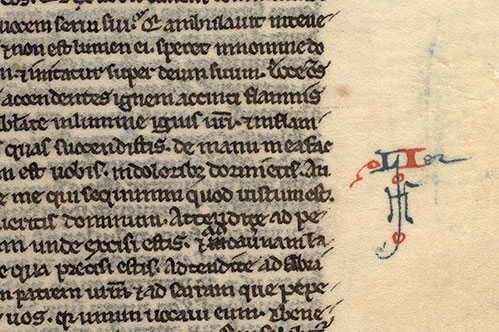 uocem serui sui. Qi ambulauit in tene
& non est lumen ei. speret in nomine do
n. & initatur super deum suum. Ecce
accendentes ignem accincti flammis
bulate in lumine ignis uri. & in flam
quas succendistis. de manu mea fac
m est uobis. in doloribus dormietis. Au
e me qui sequimini quod iustum est.
ueritis dominum. Attendite ad pe
m unde excisi estis. & ad cauernam la
e qua precisi estis. Adtendite ad abra
m patrem urm & ad saram que pepe
uos. qr unum uocaui eum. & bene